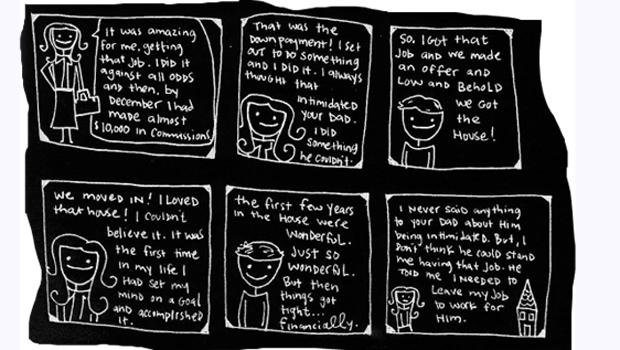 It was amazing
for me, getting
that job. I did it
against all odds
and then, by
December I had
made almost
$10,000 in commissions
That was the
down payment! I set
out to do something
and I did it. I always
thought that
intimidated
your Dad.
I did
something
he couldn't.
So, I got that
job and we made
an offer and
low and behold
we got
the
house!
We moved in! I loved
that house! I couldn't
believe it. It was
the first time
in my life I
had set my
mind on a goal
and accomplished
it.
The first few years
in the house were
wonderful.
Just so
wonderful.
But then
things got
tight...
financially.
I never said anything
to your Dad about him
being intimidated. But, I
don't think he could stand
me having that job. He
told me I needed to
leave my job
to work for
him.